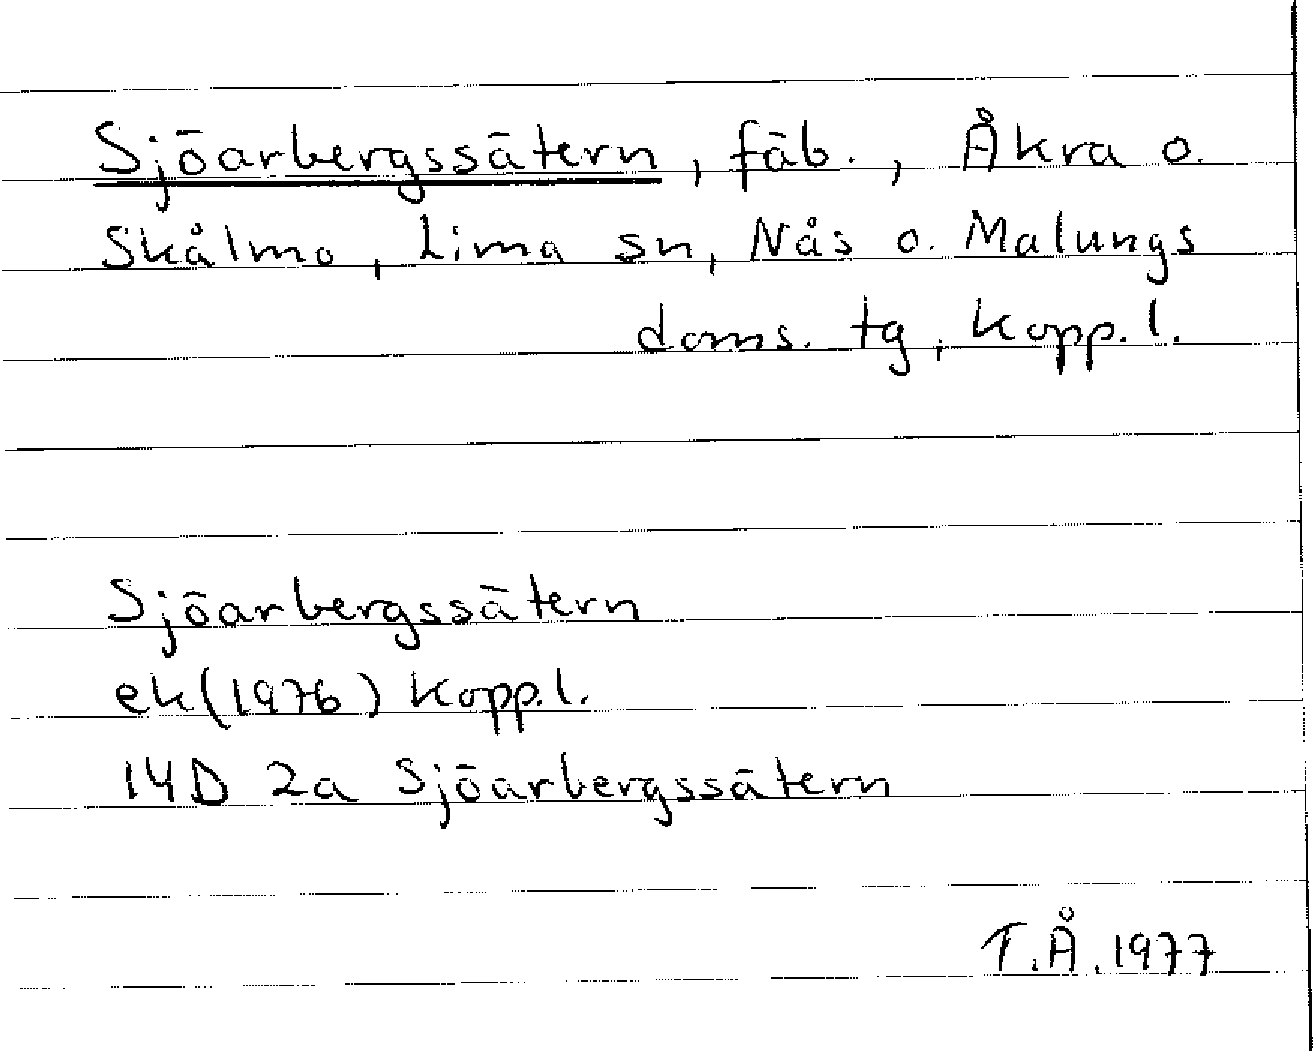 Sjöarbergssätern, fäb., Åkra o.
Skålmo, Lima sn, Nås o. Malungs
doms. tg, Kopp.l.
Sjöarbergssätern
ek(1976) Kopp.l.
14D 2a Sjöarbergssätern
T.Å.1977